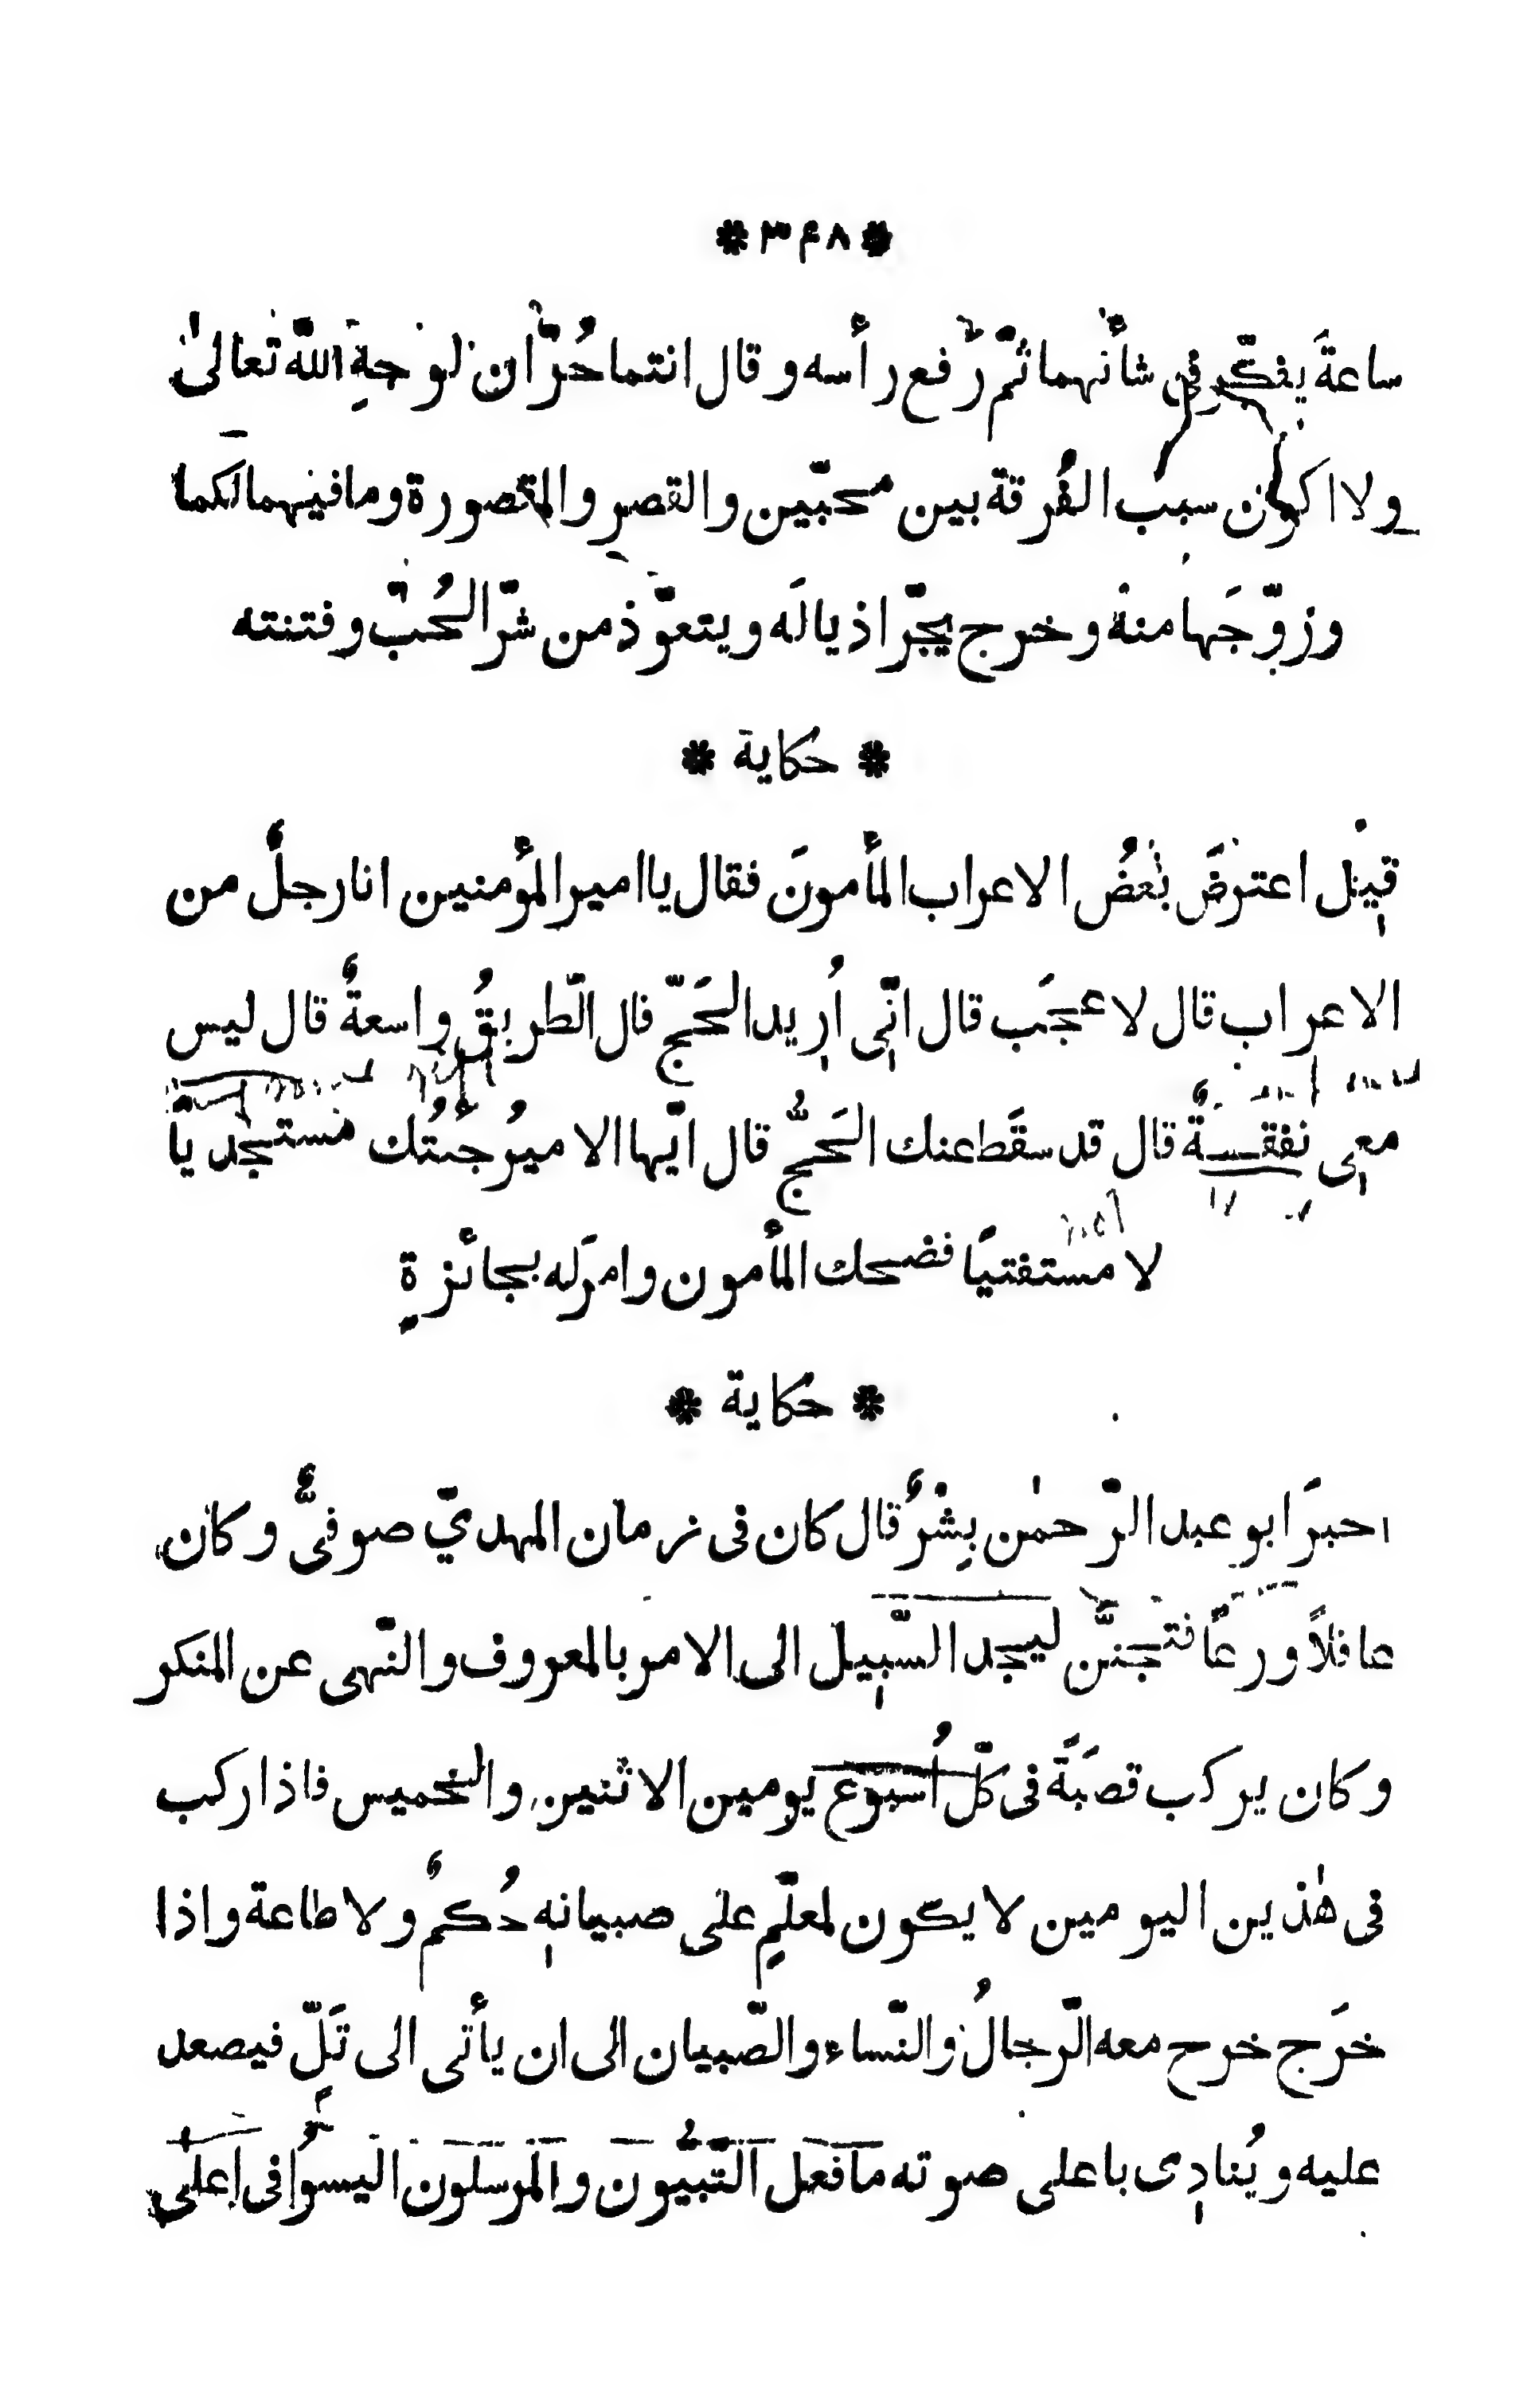 * ٣۴٨ *
ساعةً يفكّر فى شأنهما ثمّ رفع رأسه و قال انتما حُرّان لوجهِ اللّه تعالىٰ
ولا اكون سبب الفُرقة بين محبّين والقصر والمقصورة وما فيهما لكما
وزوّجَها منه و خرج يجرّ اذيالَه ويتعوّذ من شرّ الحُبّ وفتنته
* حكاية *
قيل اعترضَ بعضُ الاعراب المأمونَ فقال يا امير المؤمنين انا رجلٌ من
الاعراب قال لا عجَب قال انّى اُريد الحَجّ قال الطّريقُ واسعةٌ قال ليس
معى نفقـــةٌ قال قد سقَط عنك الحَجُّ قال ايّها الاميرُ جئتُك مستجديًا
لا مستفتيًا فضحك المأمون وامرَ له بجائزةٍ
* حكاية *
اخبرَ ابو عبد الرّحمٰن بِشْرٌ قال كان فى زمان المهدىّ صوفىٌّ وكان
عاقلاً ورعًا فتجنّن ليجد السّبيل الى الامر بالمعروف والنّهى عن المنكر
وكان يركب قصَبَةً فى كلّ اُسبوع يومين الاثنين والخميس فاذا ركب
فى هٰذين اليومين لا يكون لمعلّمٍ على صبيانه حُكمٌ ولا طاعة واذا
خرَج خرج معه الرّجالُ والنّساء والصّبيان الى ان يأتى الى تَلٍّ فيصعد
عليه ويُنادى باعلى صوته ما فعل النّبيُّون والمرسلون اليسُوا فى اعلى